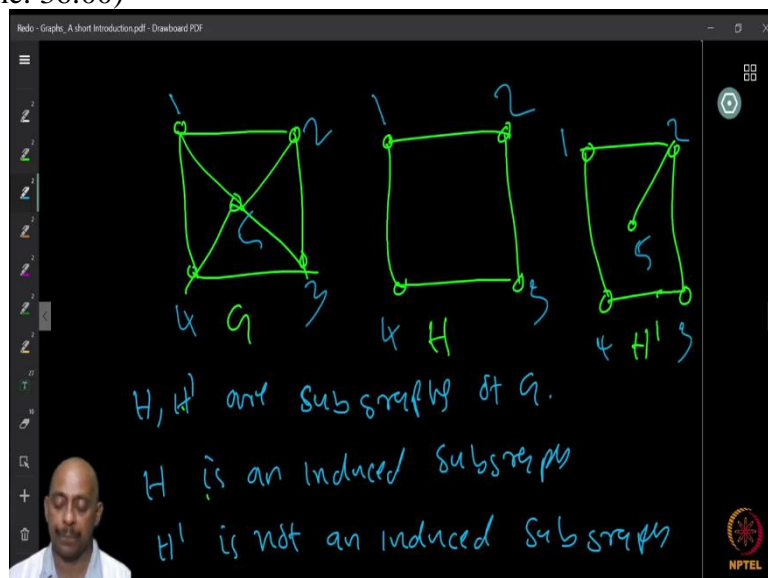 Redo - Graphs_ A short Introduction.pdf - Drawboard PDF
1 2 1 2 1 2
5 5
4 G 3 4 H 3 4 H' 3
H, H' are subgraphs of G.
H is an induced subgraph
H' is not an induced subgraph
NPTEL